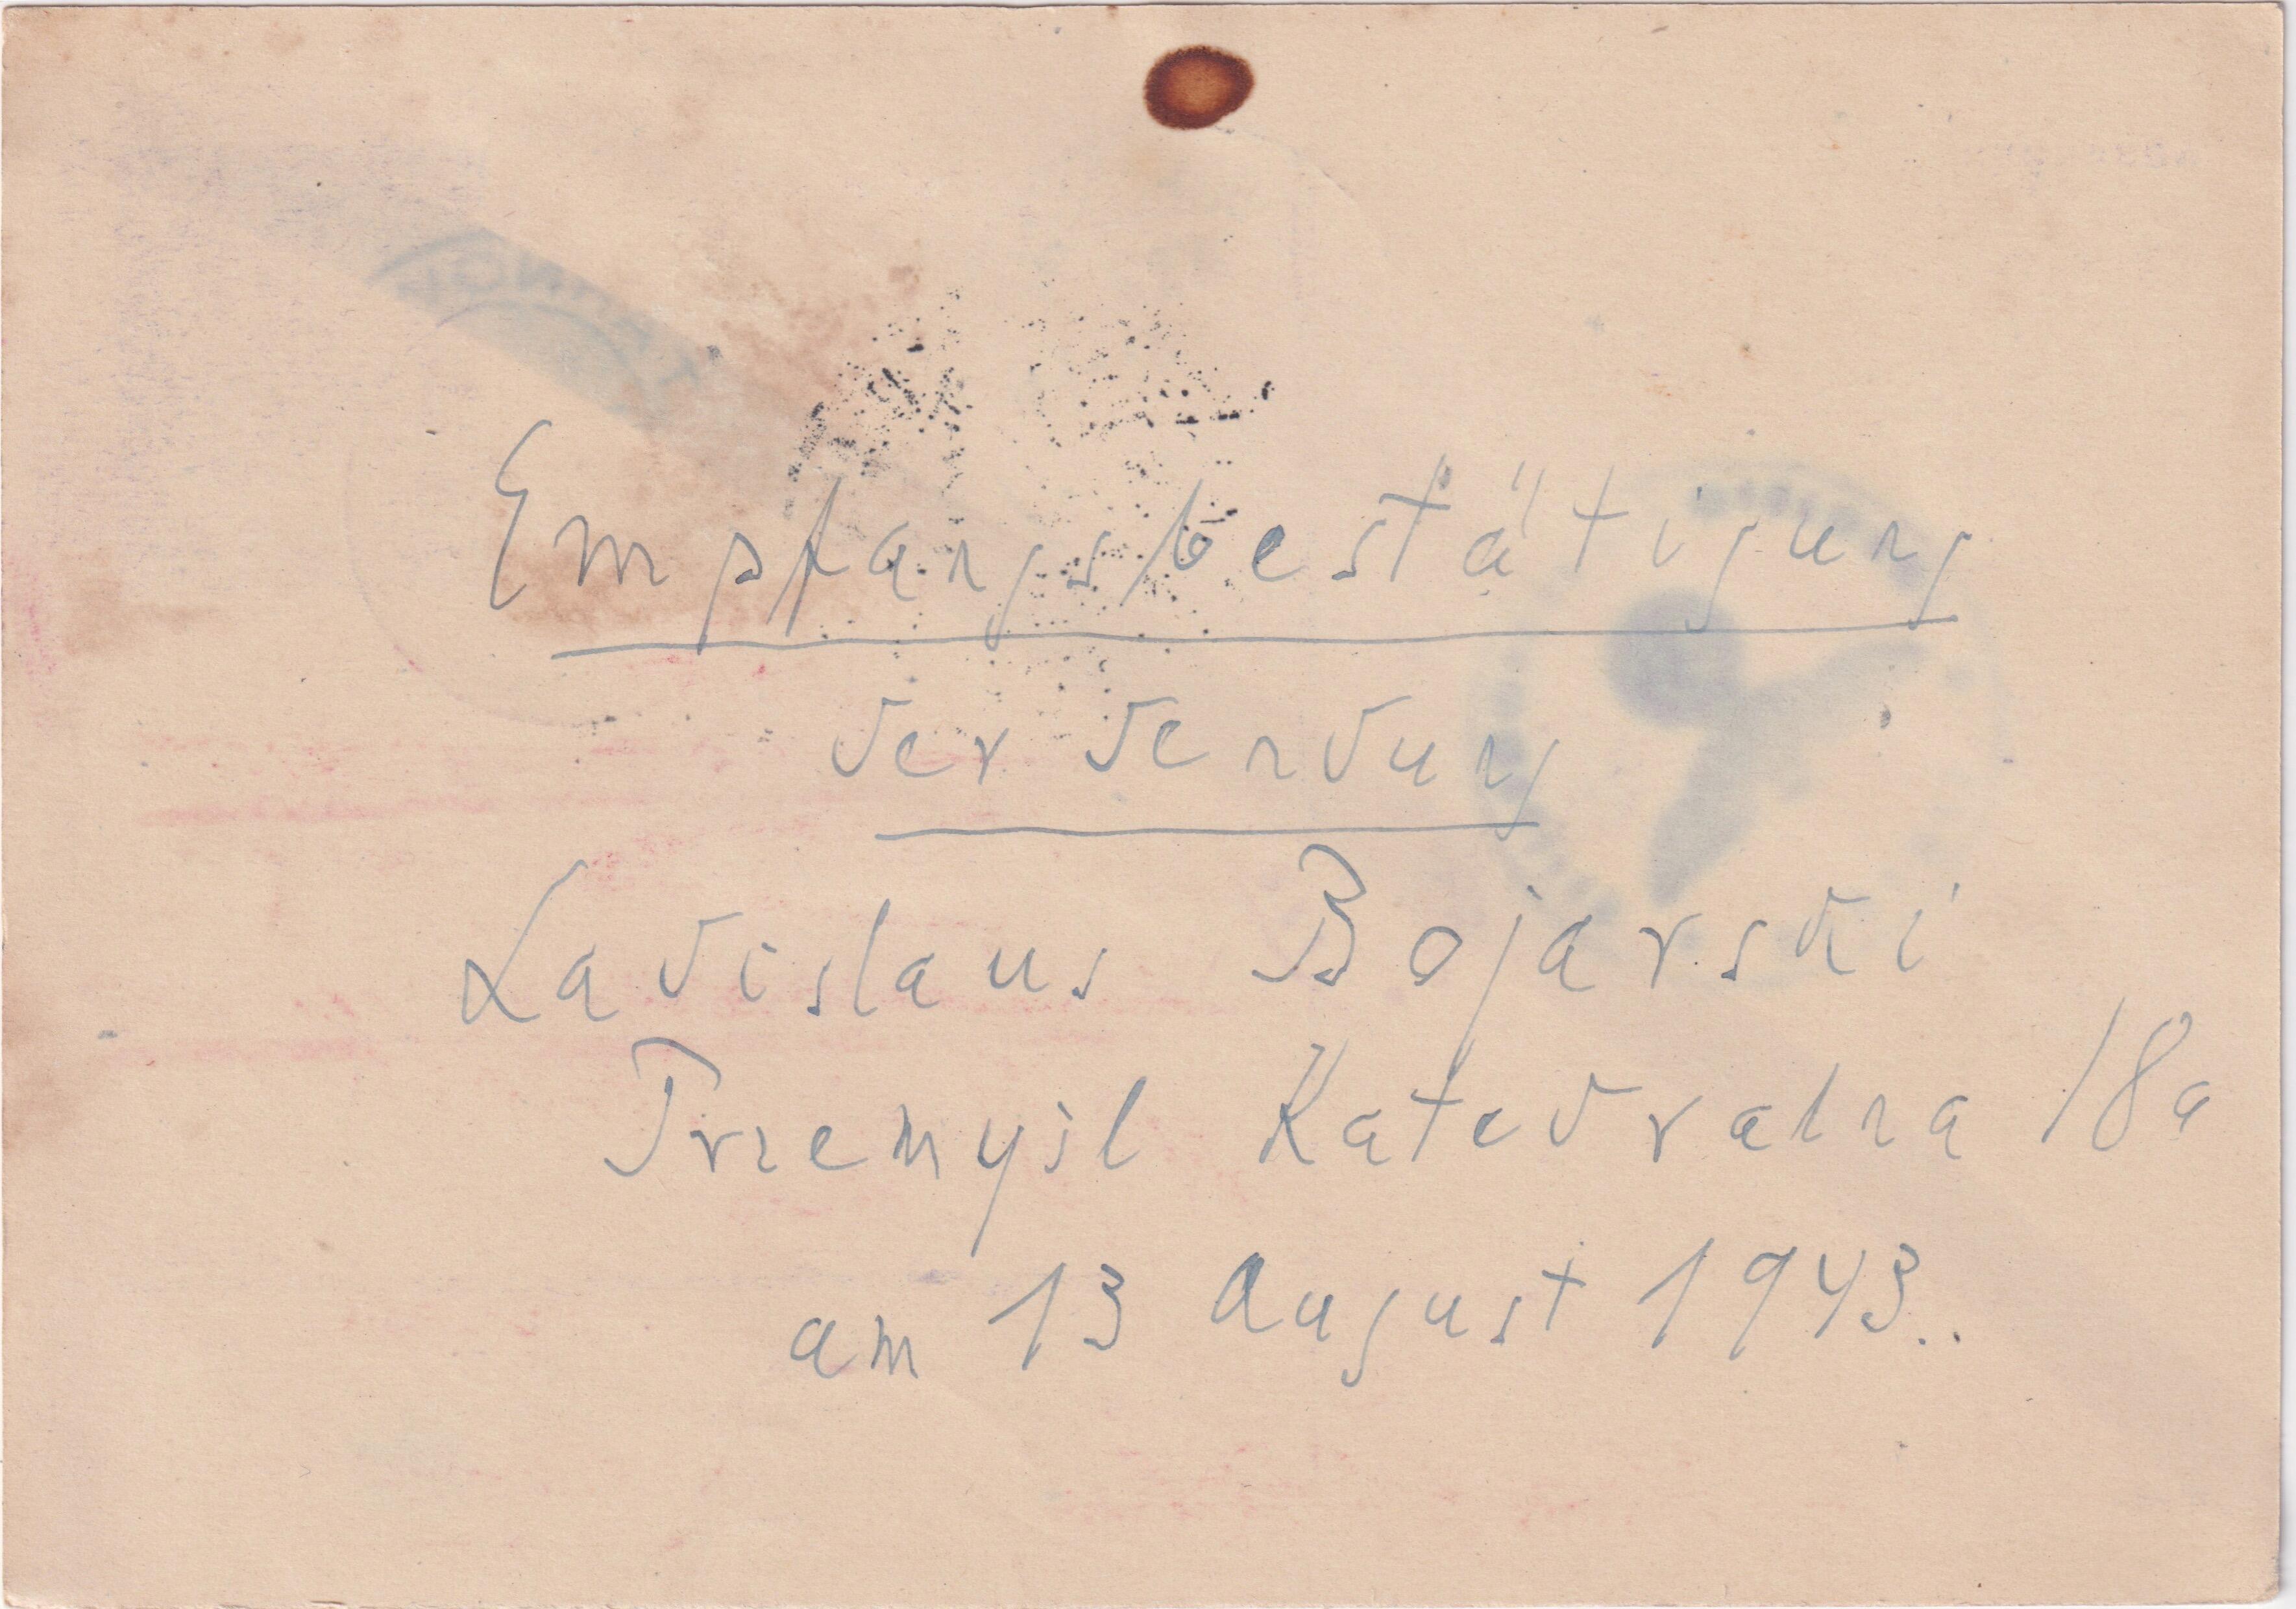 Empfangsbestätigung
der Sendung
Ladislaus Bojarski
Przemyśl Katedralna 18a
am 13 August 1943..